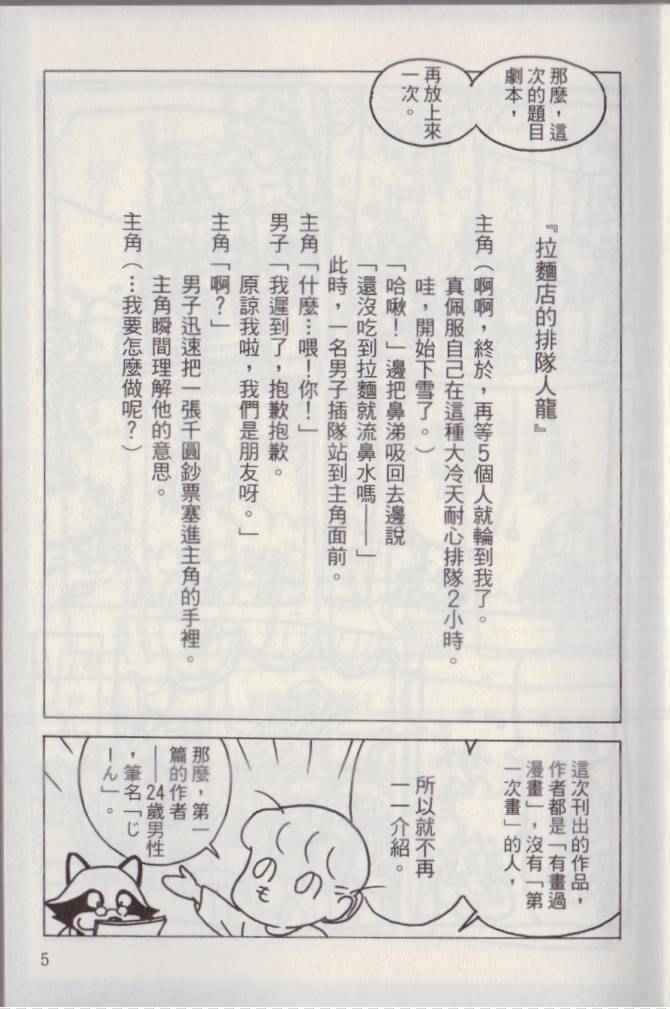 那麼，這
次的題目
劇本，
再放上來
一次。
『拉麵店的排隊人龍』
主角（啊啊，終於，再等５個人就輪到我了。
真佩服自己在這種大冷天耐心排隊２小時。
哇，開始下雪了。）
「哈啾！」邊把鼻涕吸回去邊說
「還沒吃到拉麵就流鼻水嗎——」
此時，一名男子插隊站到主角面前。
主角「什麼…喂！你！」
男子「我遲到了，抱歉抱歉。
原諒我啦，我們是朋友呀。」
主角「啊？」
男子迅速把一張千圓鈔票塞進主角的手裡。
主角瞬間理解他的意思。
主角（…我要怎麼做呢？）
這次刊出的作品，
作者都是「有畫過
漫畫」，沒有「第
一次畫」的人，
所以就不再
一一介紹。
那麼，第一
篇的作者
——24歲男性
，筆名「じ
ーん」。
5